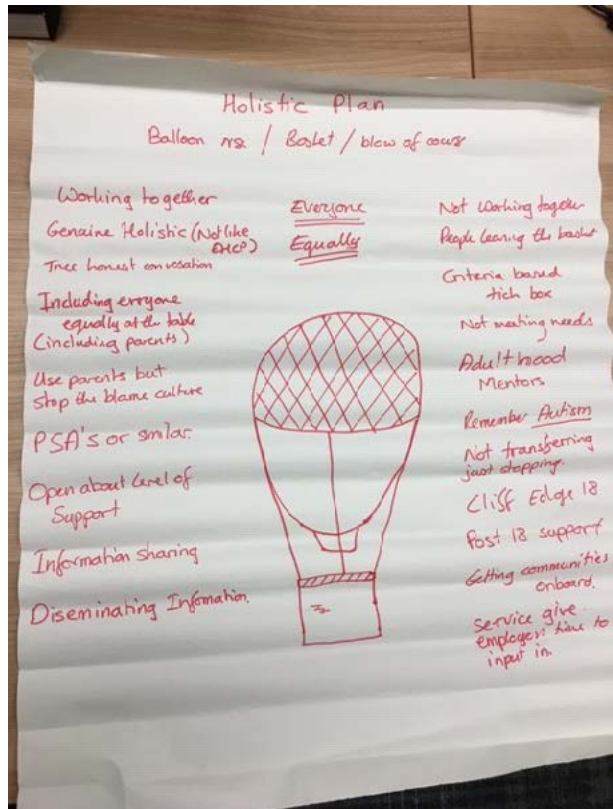 Holistic Plan
Balloon / Basket / blow of
Working together
Genuine Holistic (Not like
EHCP)
honest
Including everyone
equally at the table
(including parents)
Use parents but
stop the blame culture
PSA's or similar.
Open about Level of
Support
Information sharing
Diseminating Information.
Everyone
Equally
Not Working together
People leaving the basket
Criteria based
tick box
Not meeting needs
Adulthood
Mentors
Remember Autism
Not transferring
just stopping.
Cliff Edge 18
Post 18 support
Getting communities
onboard.
service give
employers time to
input in.